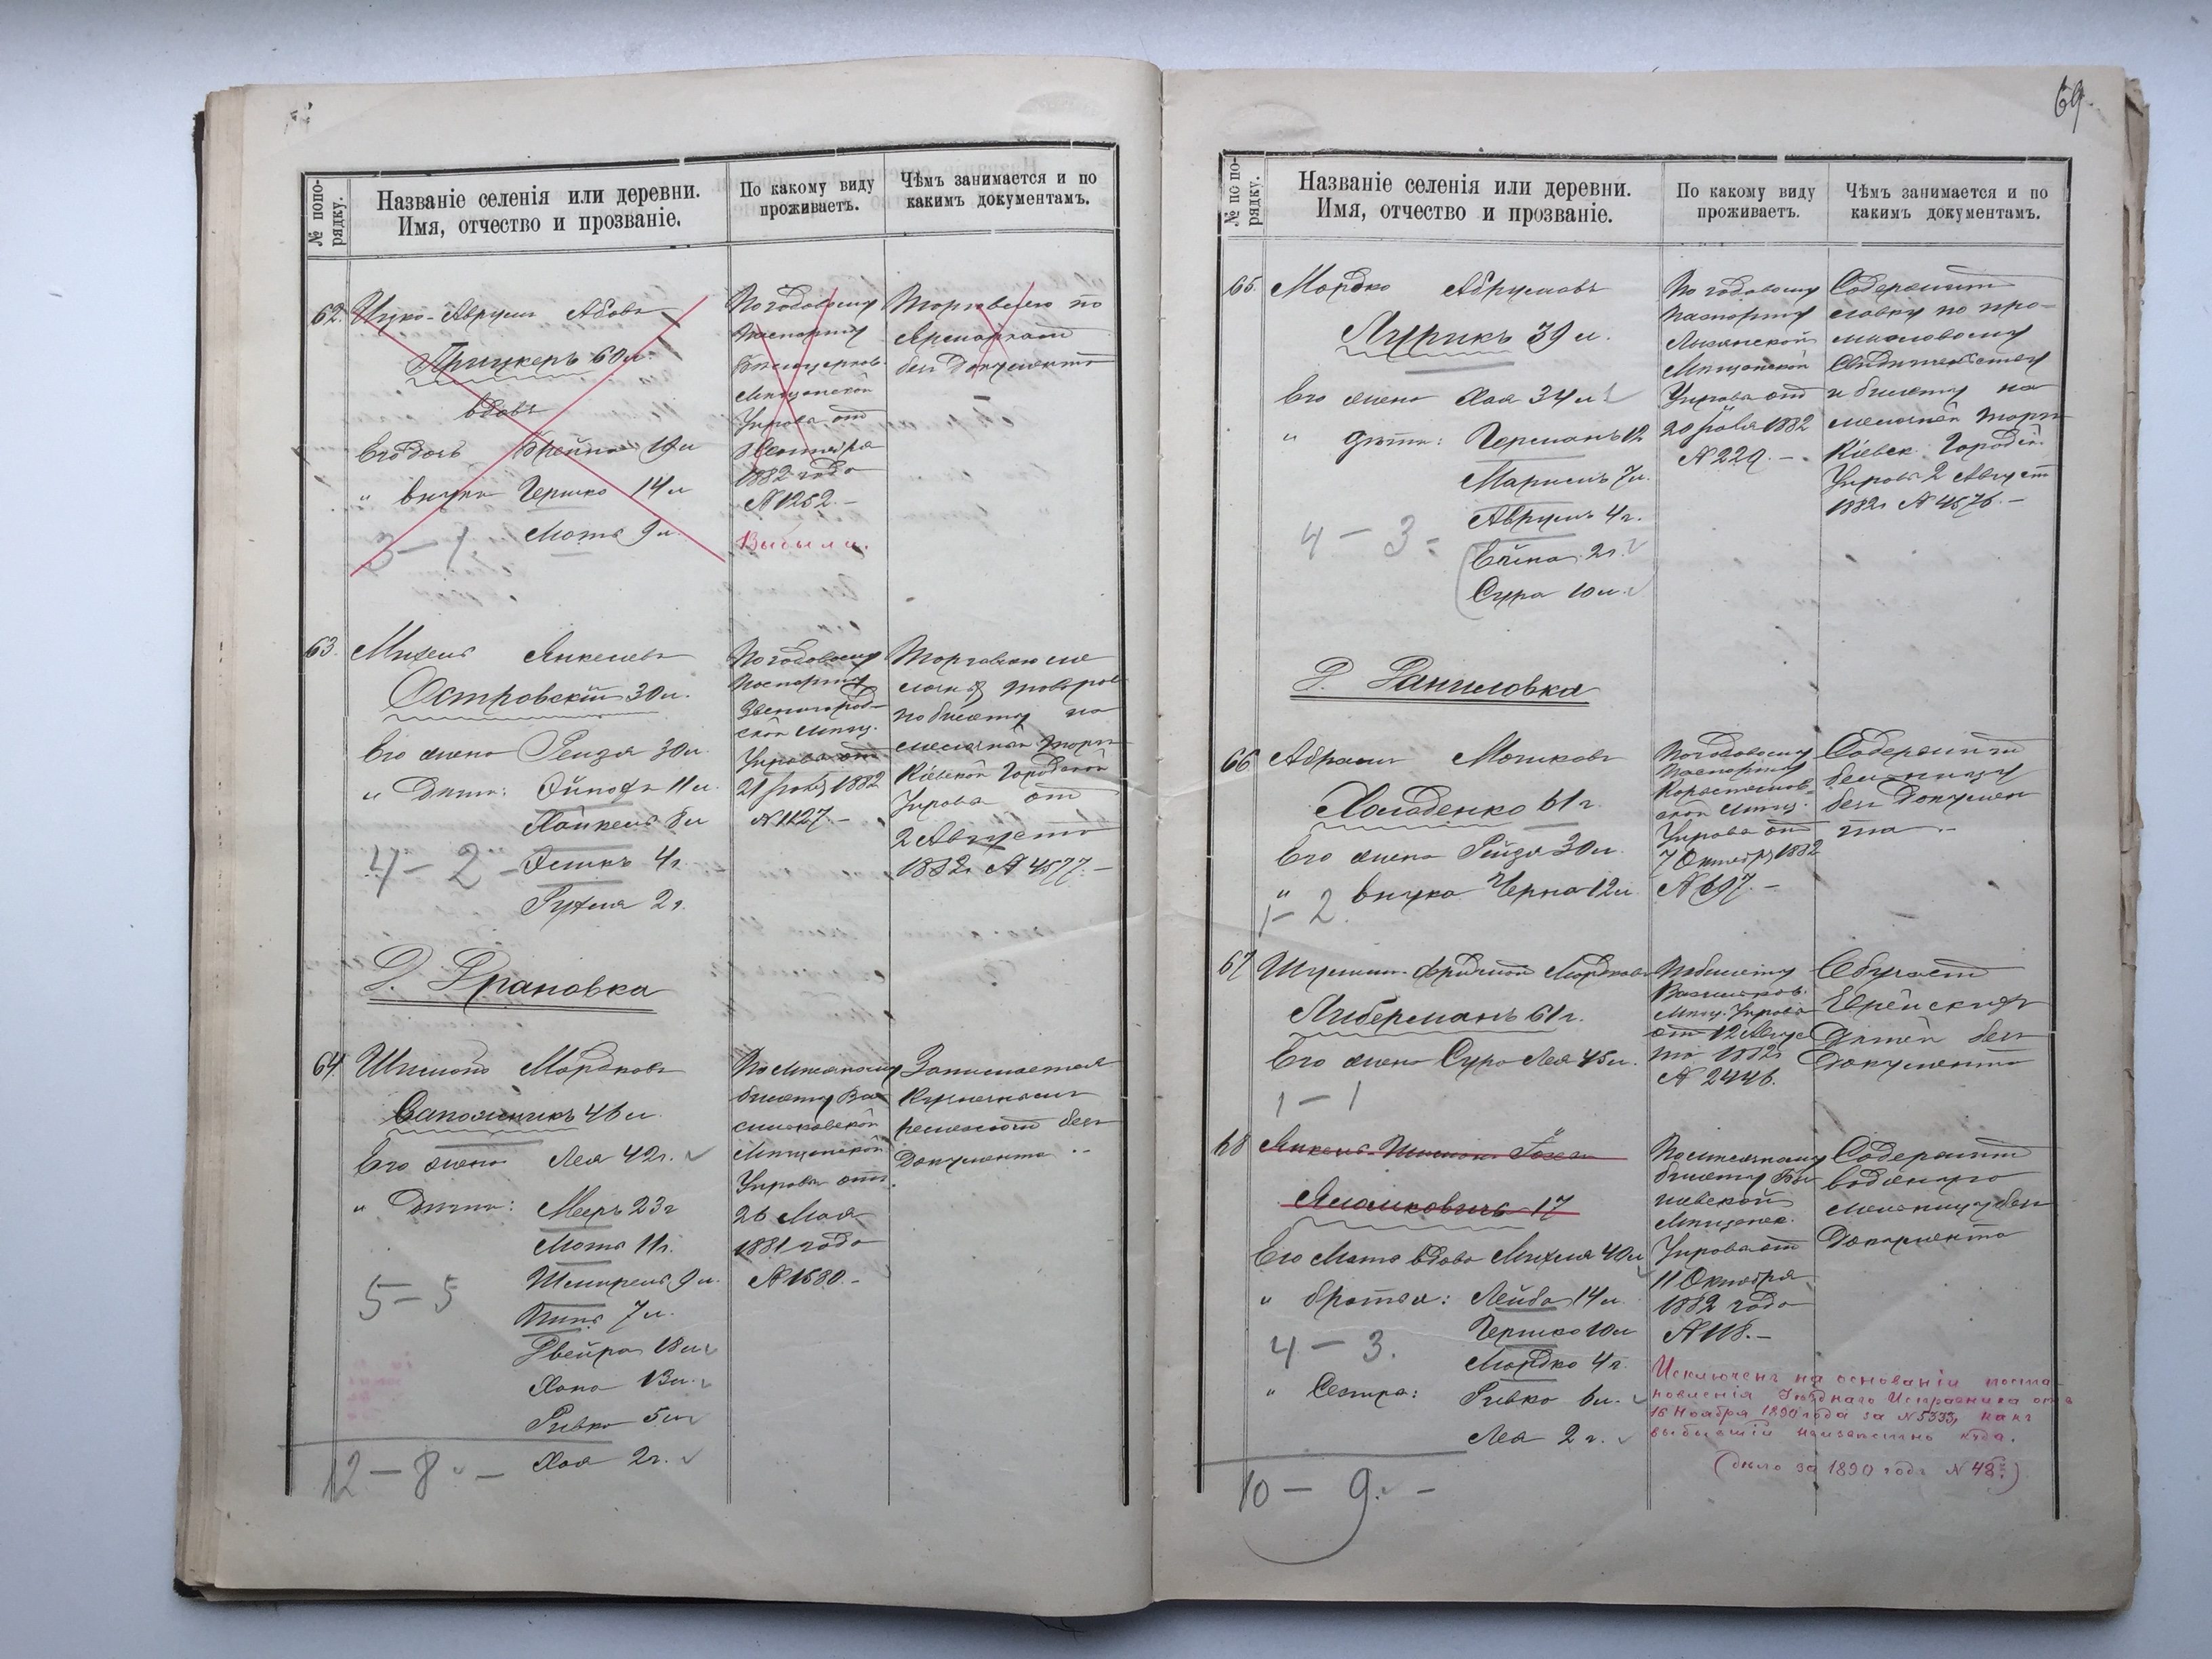 № попо-
рядку.
Названіе селенія или деревни.
Имя, отчество и прозваніе.
По какому виду
проживаетъ.
Чѣмъ занимается и по
какимъ документамъ.
62.
Ицко-Аврумъ Абовъ
Прицкеръ 60 л.
вдовъ
Его дочь Брейна 19 л
" внуки Гершко 14 л
Мотя 9 л.
3 – 1
По годовому
паспорту
Бѣлоцерков.
Мѣщанской
Управы отъ
1882 года
№ 1252.–
Выбыли.
Торговлею по
Ярмаркамъ
безъ документа
63.
Михель Янкелевъ
Островскій 30 л.
Его жена Рейзя 30 л.
" Дѣти: 11 л.
Хайкель 8 л
Іосикъ 4 г.
Рухля 2 г.
4 – 2 –
По годовому
паспорту
Звенигород-
ской Мѣщ.
Управы отъ
21 Іюля 1882
№ 1127.–
Торговлею ме
лочныхъ товаров
по билету на
мелочной торгъ
Кіевской Городской
Управы отъ
2 Августа
1882 г № 4577.–
Д. Грановка
64.
Шимонъ Мордковъ
Сапожникъ 46 л.
Его жена Лея 42 г.
" Дѣти: Мееръ 23 г
Мотя 11 г.
Шмирель 9 л.
Пиня 7 л.
Двейра 18 л
Хана 13 л.
Ривка 5 л
Хая 2 г.
5 – 5
12 – 8. –
По мѣсячному
билету Ва
сильковской
Мѣщанской
Управы отъ
26 Мая
1881 года
№ 1580.–
Занимается
Кузнечнымъ
ремесломъ безъ
документа..
69.
№ по по-
рядку.
Названіе селенія или деревни.
Имя, отчество и прозваніе.
По какому виду
проживаетъ.
Чѣмъ занимается и по
какимъ документамъ.
65.
Мордко Абрумовъ
Лурикъ 39 л.
Его жена Хая 34 л.
" Дѣти: Германъ 12
7 л.
Аврумъ 4 г.
Ейна 2 г.
Сура 10 л.
4 – 3.
По годовому
паспорту
Лисянской
Мѣщанской
Управы отъ
20 Іюля 1882
№ 229.–
Содержитъ
лавку по про-
мысловому
свидѣтельству
и билету на
мелочной торгъ
Кіевск. Городск.
Управы 2 Август
1882 г № 4576.–
Д. Даниловка
66
Абрамъ Мошковъ
Холоденко 61 г.
Его жена Рейзя 30 л.
" внука Черна 12 л
1 – 2.
По годовому
паспорту
Корсте
ской Мѣщ.
Управы отъ
7 Октября 1882
№ 697.–
Содержитъ
мельницу
безъ докумен
та.–
67
Шулимъ-Фридель Мордковъ
Либерманъ 61 г.
Его жена Сура Лея 45 л.
1 – 1
По билету
Васильков.
Мѣщ. Управы
отъ 12 Авгус
та 1882 г
№ 2446.
Обучаетъ
Еврейскихъ
Дѣтей безъ
Документа
68
Янкель-Шимон-
17
Его Мать вдова Михля 40 л
" братья: Лейба 14 л.
Гершко 10 л
Мордко 4 г.
" Сестра: Ривка 6 л.
Лея 2 г.
4 – 3.
10 – 9. –
По мѣсячному
билету
Мѣщанск.
Управы отъ
11 Октября
1882 года
№ 118.–
Содержитъ
водяную
мельницу безъ
Документа
Исключенъ на основаніи поста-
новленія Уѣзднаго Исправника отъ
16 Ноября 1890 года за № 5333, какъ
выбывшій неизвѣстно куда.
(дѣло за 1890 годъ № 48.)